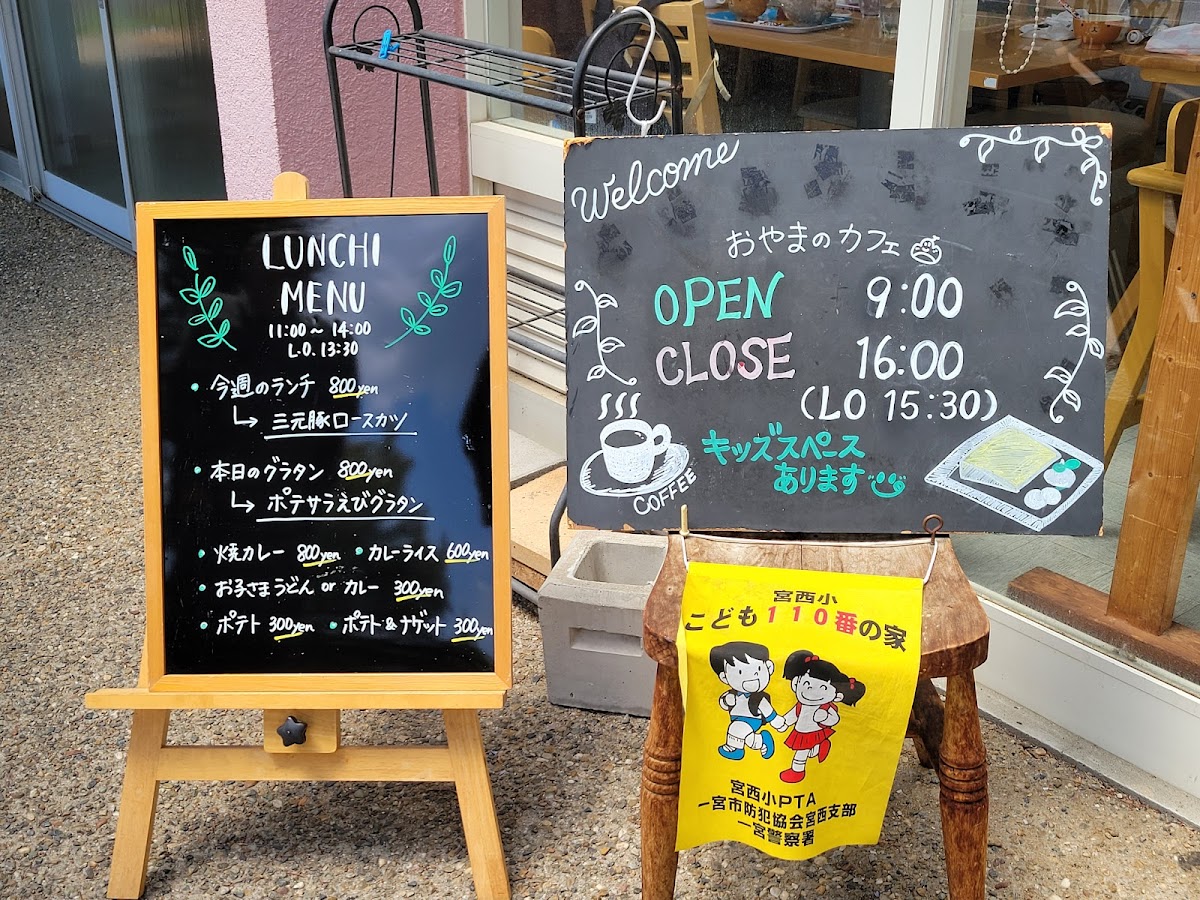 LUNCHI
MENU
11:00～14:00
L.O. 13:30
・今週のランチ 800yen
↳ 三元豚ロースカツ
・本日のグラタン 800yen
↳ ポテサラえびグラタン
・焼カレー 800yen ・カレーライス 600yen
・お子さまうどん or カレー 300yen
・ポテト 300yen ・ポテト&ナゲット 300yen
Welcome
おやまのカフェ
OPEN 9:00
CLOSE 16:00
(LO 15:30)
キッズスペース
あります
COFFEE
宮西小
こども110番の家
宮西小PTA
一宮市防犯協会宮西支部
一宮警察署